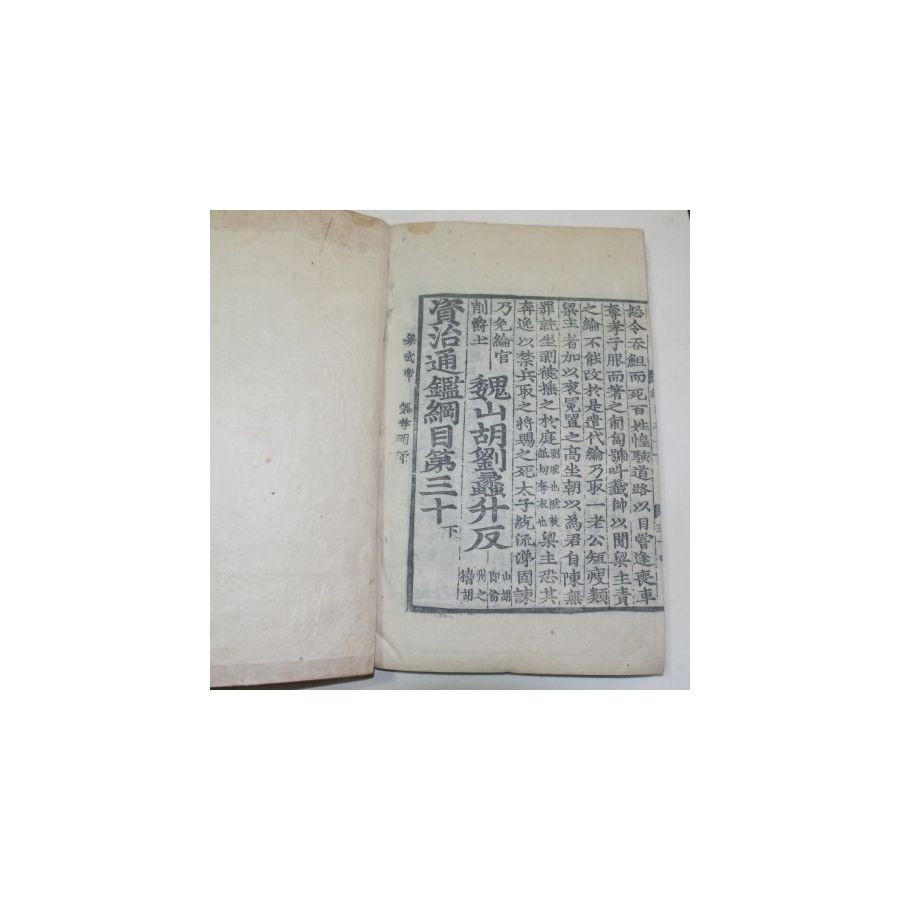 令吞䱇而死百姓惶駭道路以目嘗逢喪車
奪孝子服而著之匍匐號叫籖帥以聞梁主責
之綸不能改於是遣代綸乃取一老公短瘦類
梁主者加以衮冕置之高坐朝以為君自陳無
罪就坐剥禠捶之於庭剥脱也禠敕紙切奪衣也梁主恐其
奔逸以禁兵取之將賜之死太子統流涕固諫
乃免綸官
削爵土
魏山胡劉蠡升反
山胡
即汾
州之
稽胡
資治通鑑綱目第三十下
梁武帝 魏孝明帝